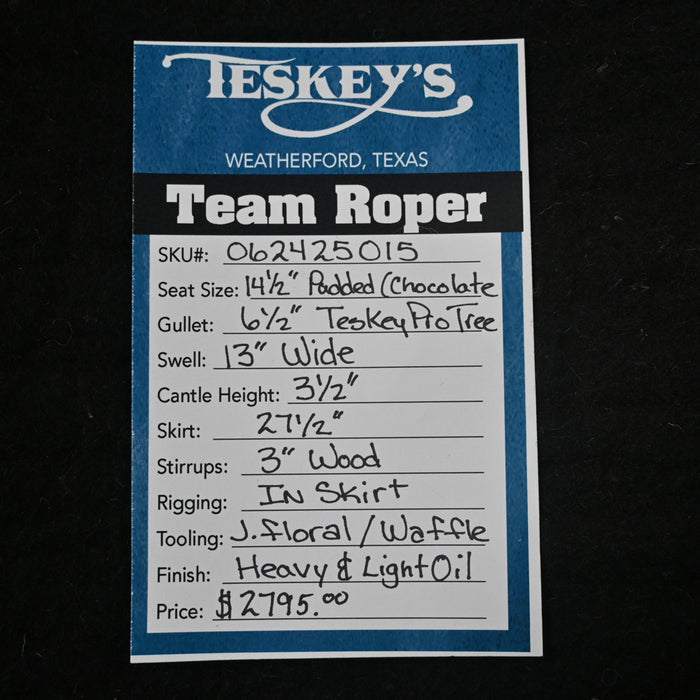 TESKEY'S
WEATHERFORD, TEXAS
Team Roper
SKU#: 062425015
Seat Size: 14½" Padded (Chocolate
Gullet: 6½" Teskey Pro Tree
Swell: 13" Wide
Cantle Height: 3½"
Skirt: 27½"
Stirrups: 3" Wood
Rigging: IN Skirt
Tooling: J. floral / Waffle
Finish: Heavy & Light Oil
Price: $2795.00